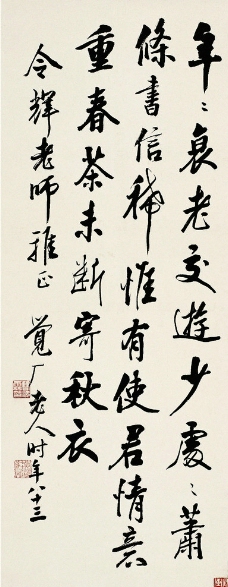 年〻衰老交遊少處〻蕭
條書信稀惟有使君情意
重春茶未斷寄秋衣
令輝老師雅正
覺厂老人时年八十三